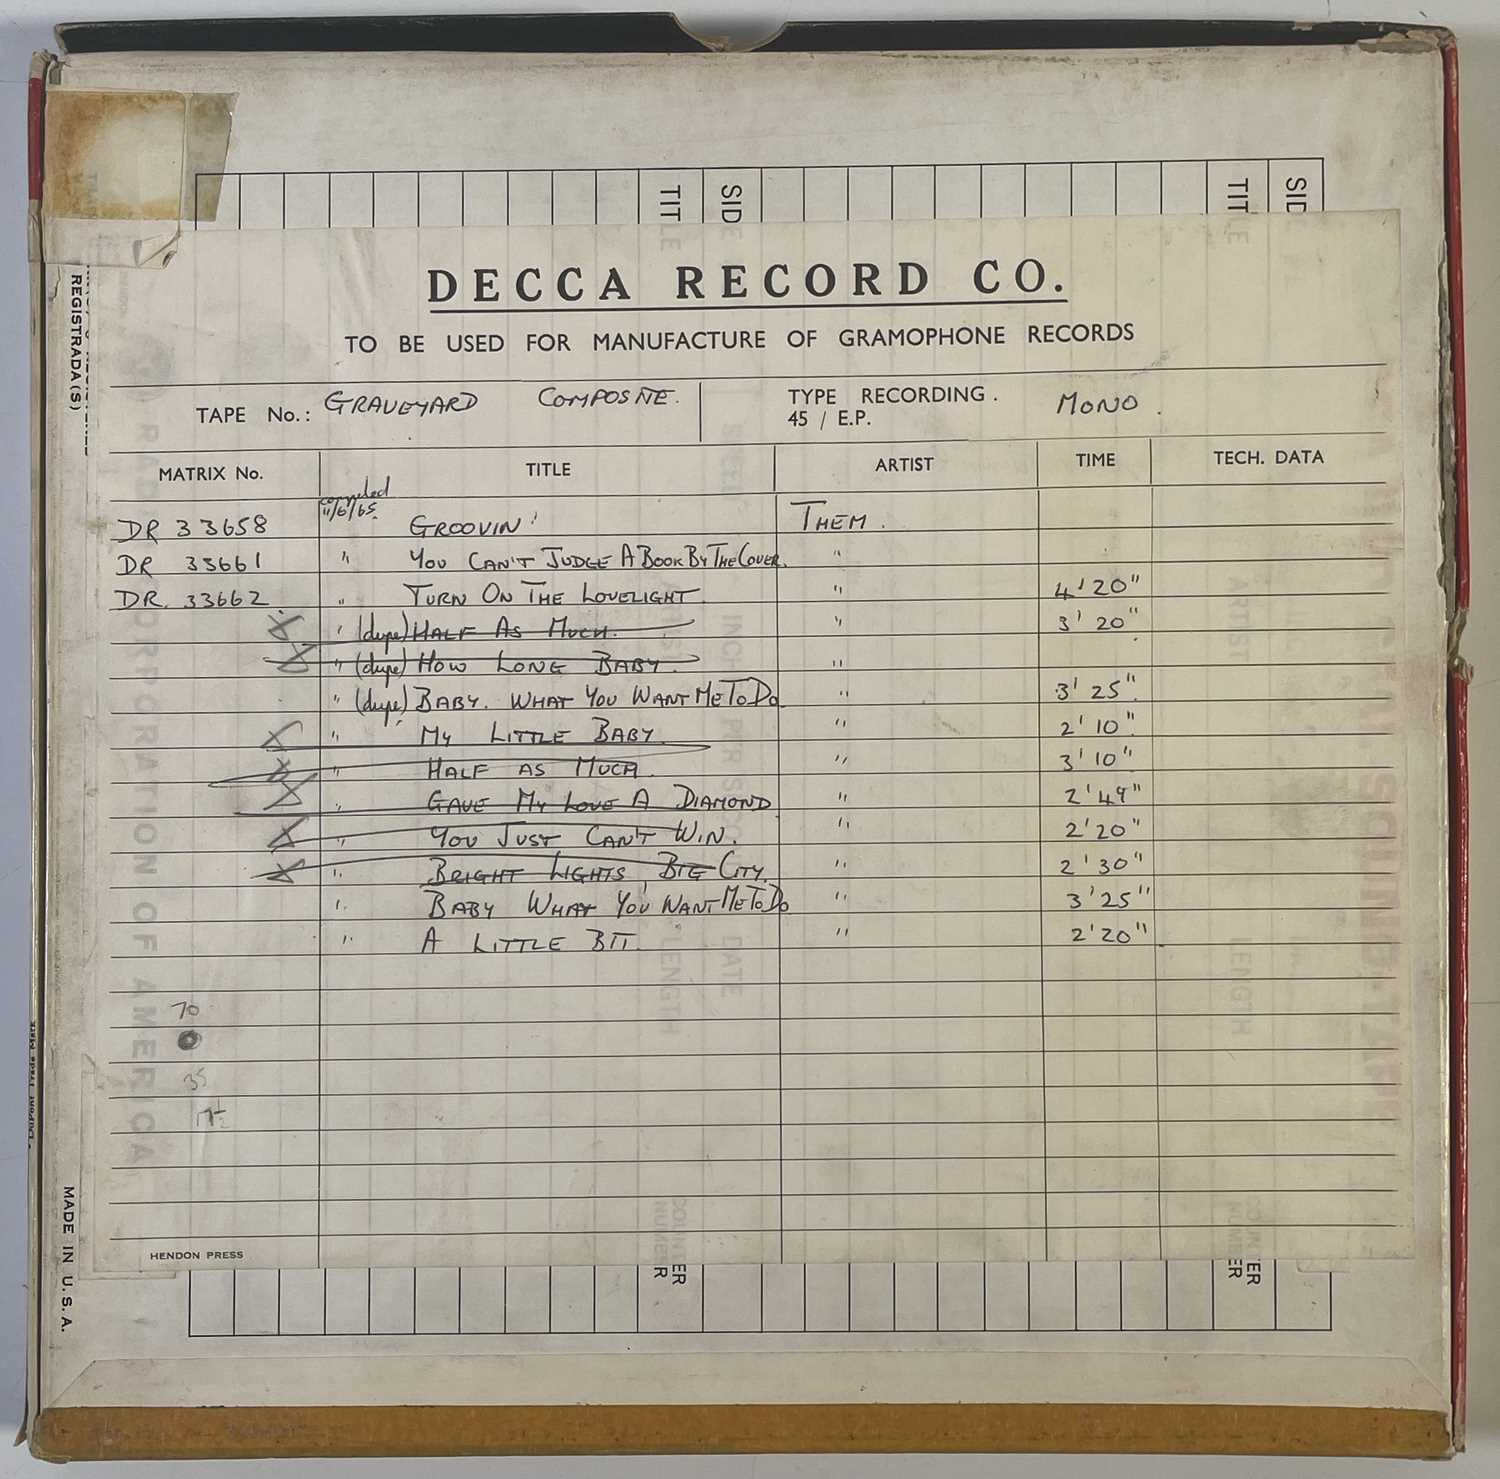 TITLE SIDE TITLE SIDE
REGISTRADA(S)
DECCA RECORD CO.
TO BE USED FOR MANUFACTURE OF GRAMOPHONE RECORDS
TAPE No.: GRAVEYARD COMPOSITE. TYPE RECORDING. 45 / E.P. MONO.
MATRIX No. TITLE ARTIST TIME TECH. DATA
11/6/65.
DR 33658 GROOVIN' THEM.
DR 33661 " YOU CAN'T JUDGE A BOOK BY THE COVER. "
DR. 33662 " TURN ON THE LOVELIGHT " 4'20"
X " (dupe) HALF AS MUCH. " 3'20"
X " (dupe) HOW LONG BABY. "
" (dupe) BABY. WHAT YOU WANT ME TO DO " 3'25"
X " MY LITTLE BABY " 2'10"
X " HALF AS MUCH " 3'10"
X " GAVE MY LOVE A DIAMOND " 2'49"
X " YOU JUST CAN'T WIN. " 2'20"
X " BRIGHT LIGHTS BIG CITY. " 2'30"
" BABY WHAT YOU WANT ME TO DO " 3'25"
" A LITTLE BIT. " 2'20"
70
35
HENDON PRESS
RADIO CORPORATION OF AMERICA
SPEED INCH PER SEC
ARTIST
DATE
LENGTH
COUNTER NUMBER
ARTIST
LENGTH
COUNTER NUMBER
DuPont Trade Mark
MADE IN U.S.A.